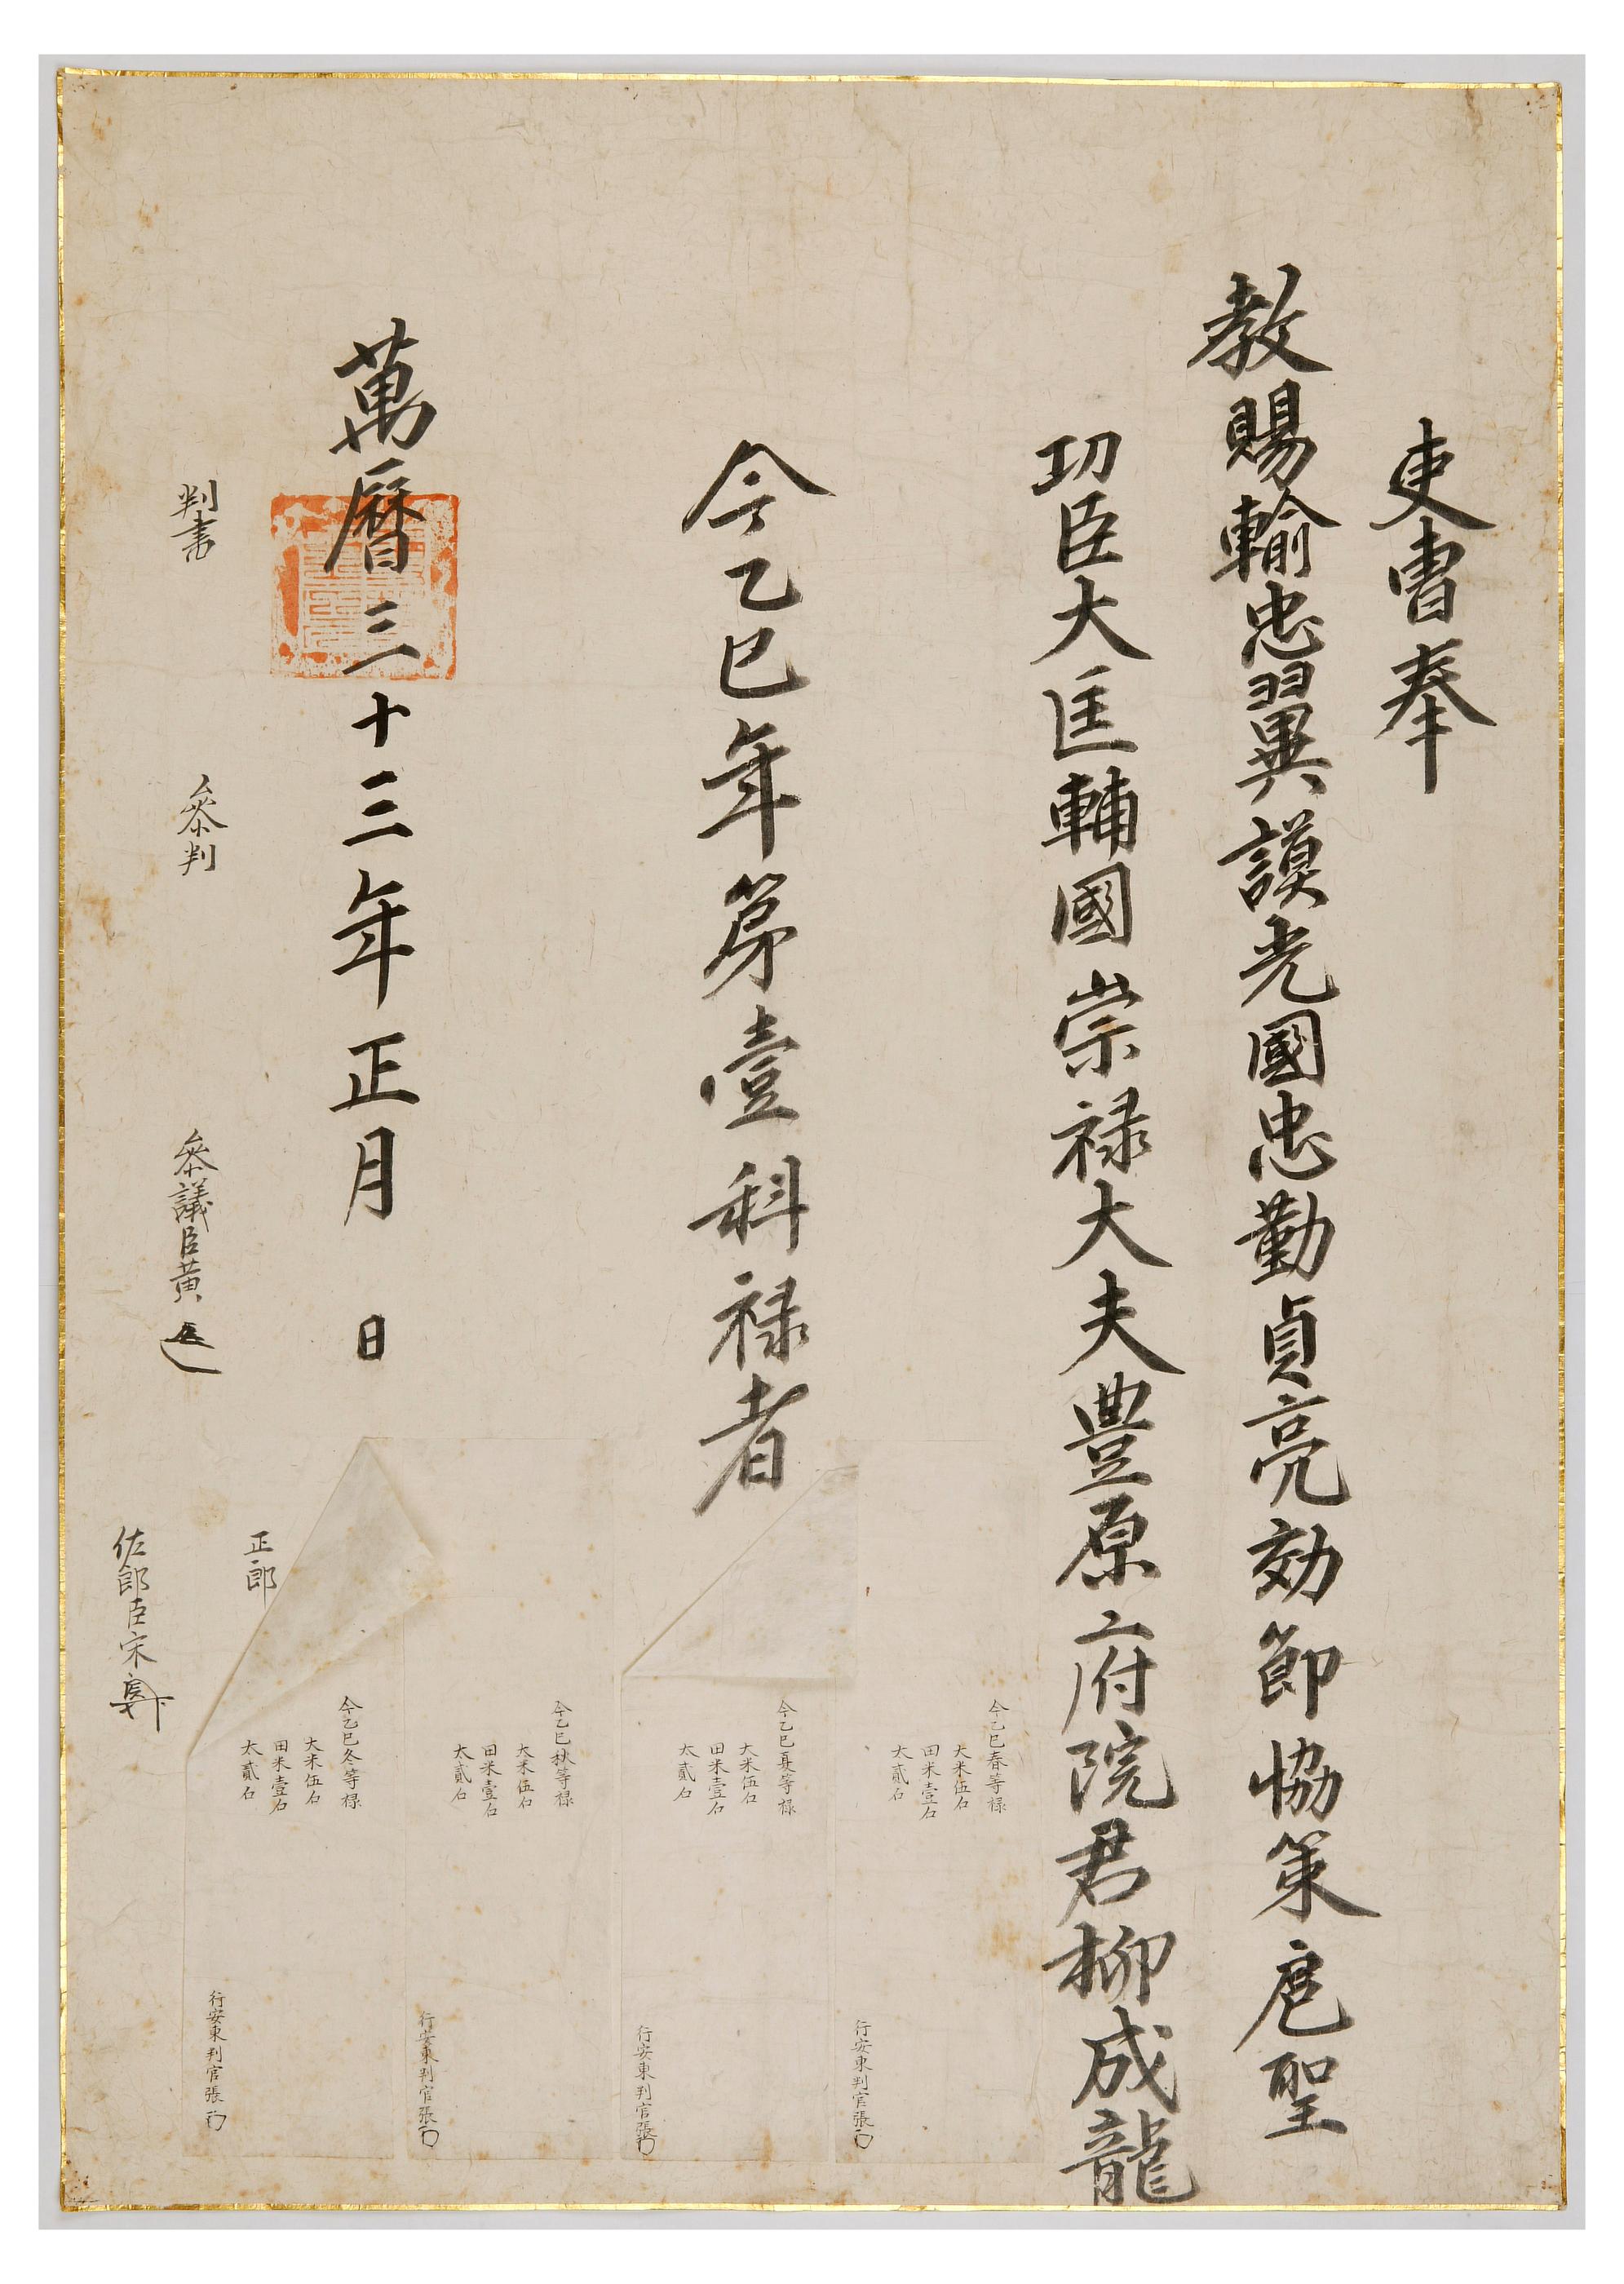 吏曹奉
教賜輸忠翼謨光國忠勤貞亮効節協策扈聖
功臣大匡輔國崇禄大夫豊原府院君柳成龍
今乙巳年第壹科禄者
萬曆三十三年正月 日
判書 參判 參議臣黃
正郎
佐郎臣宋
今乙巳春等禄
大米伍石
田米壹石
太貳石
行安東判官張
今乙巳夏等禄
大米伍石
田米壹石
太貳石
行安東判官張
今乙巳秋等禄
大米伍石
田米壹石
太貳石
行安東判官張
今乙巳冬等禄
大米伍石
田米壹石
太貳石
行安東判官張